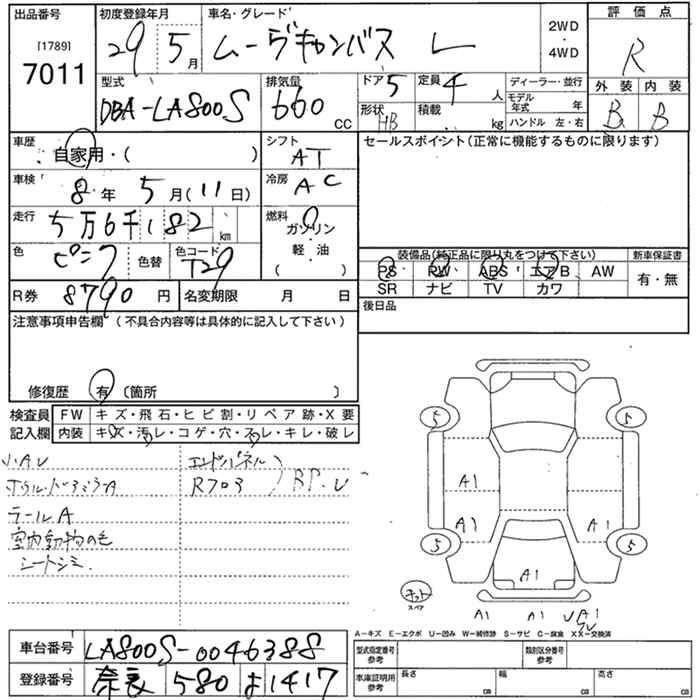 出品番号
[1789]
7011
初度登録年月
29 5月
車名・グレード
ムーヴキャンバス L
2WD
・
4WD
評価点
R
外装 内装
B B
型式
DBA-LA800S
排気量
660 CC
ドア 5
形状 HB
定員 4人
積載 kg
ディーラー・並行
モデル年式 年
ハンドル 左・右
車歴
自家用・( )
シフト
AT
車検
8年 5月(11日)
冷房
AC
走行
5万6千182km
燃料
ガソリン
・
軽・油
( )
色
ピンク 色替
色コード
T29
R券 8790円
名変期限 月 日
セールスポイント(正常に機能するものに限ります)
装備品(純正品に限り丸をつけて下さい)
PS PW ABS エアB AW
SR ナビ TV カワ
新車保証書
有・無
後日品
注意事項申告欄(不具合内容等は具体的に記入して下さい)
修復歴 有 (箇所 )
検査員記入欄
FW キズ・飛石・ヒビ割・リペア跡・X要
内装 キズ・汚レ・コゲ・穴・スレ・キレ・破レ
小AU
エンドパネル
R フロア
BP.U
テールA
室内動物の毛
シートシミ.
5 5
A1
A1 A1
5 5
A1
キット
スペア
A1 A1 U A1
A-キズ E-エクボ U-凹み W-補修跡 S-サビ C-腐食 XX-交換済
車台番号 LA800S-0046388
登録番号 奈良 580 よ 1417
型式指定番号
参考
類別区分番号
参考
車庫証明用
参考
長さ cm
幅 cm
高さ cm